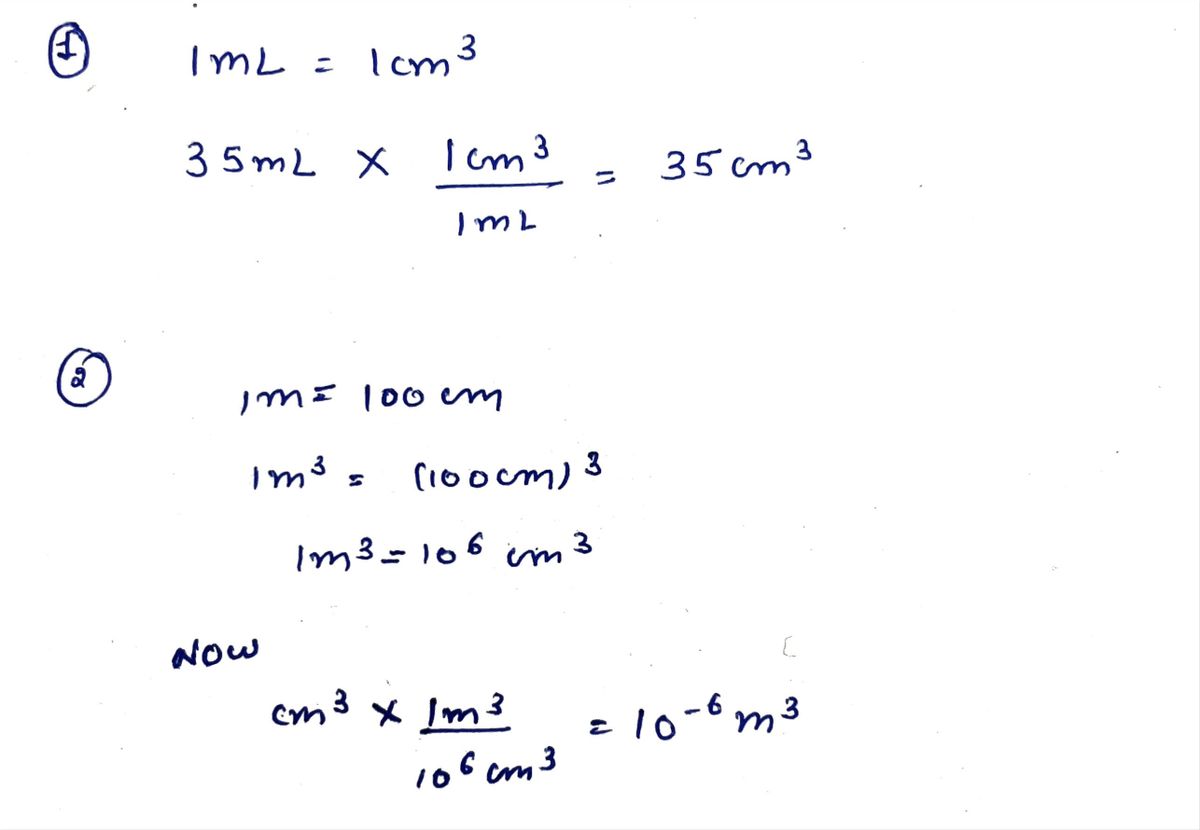 ① 1mL = 1cm³
35mL × 1cm³ / 1mL = 35cm³
② 1m = 100 cm
1m³ = (100cm)³
1m³ = 10⁶ cm³
Now
cm³ × 1m³ / 10⁶ cm³ = 10⁻⁶ m³